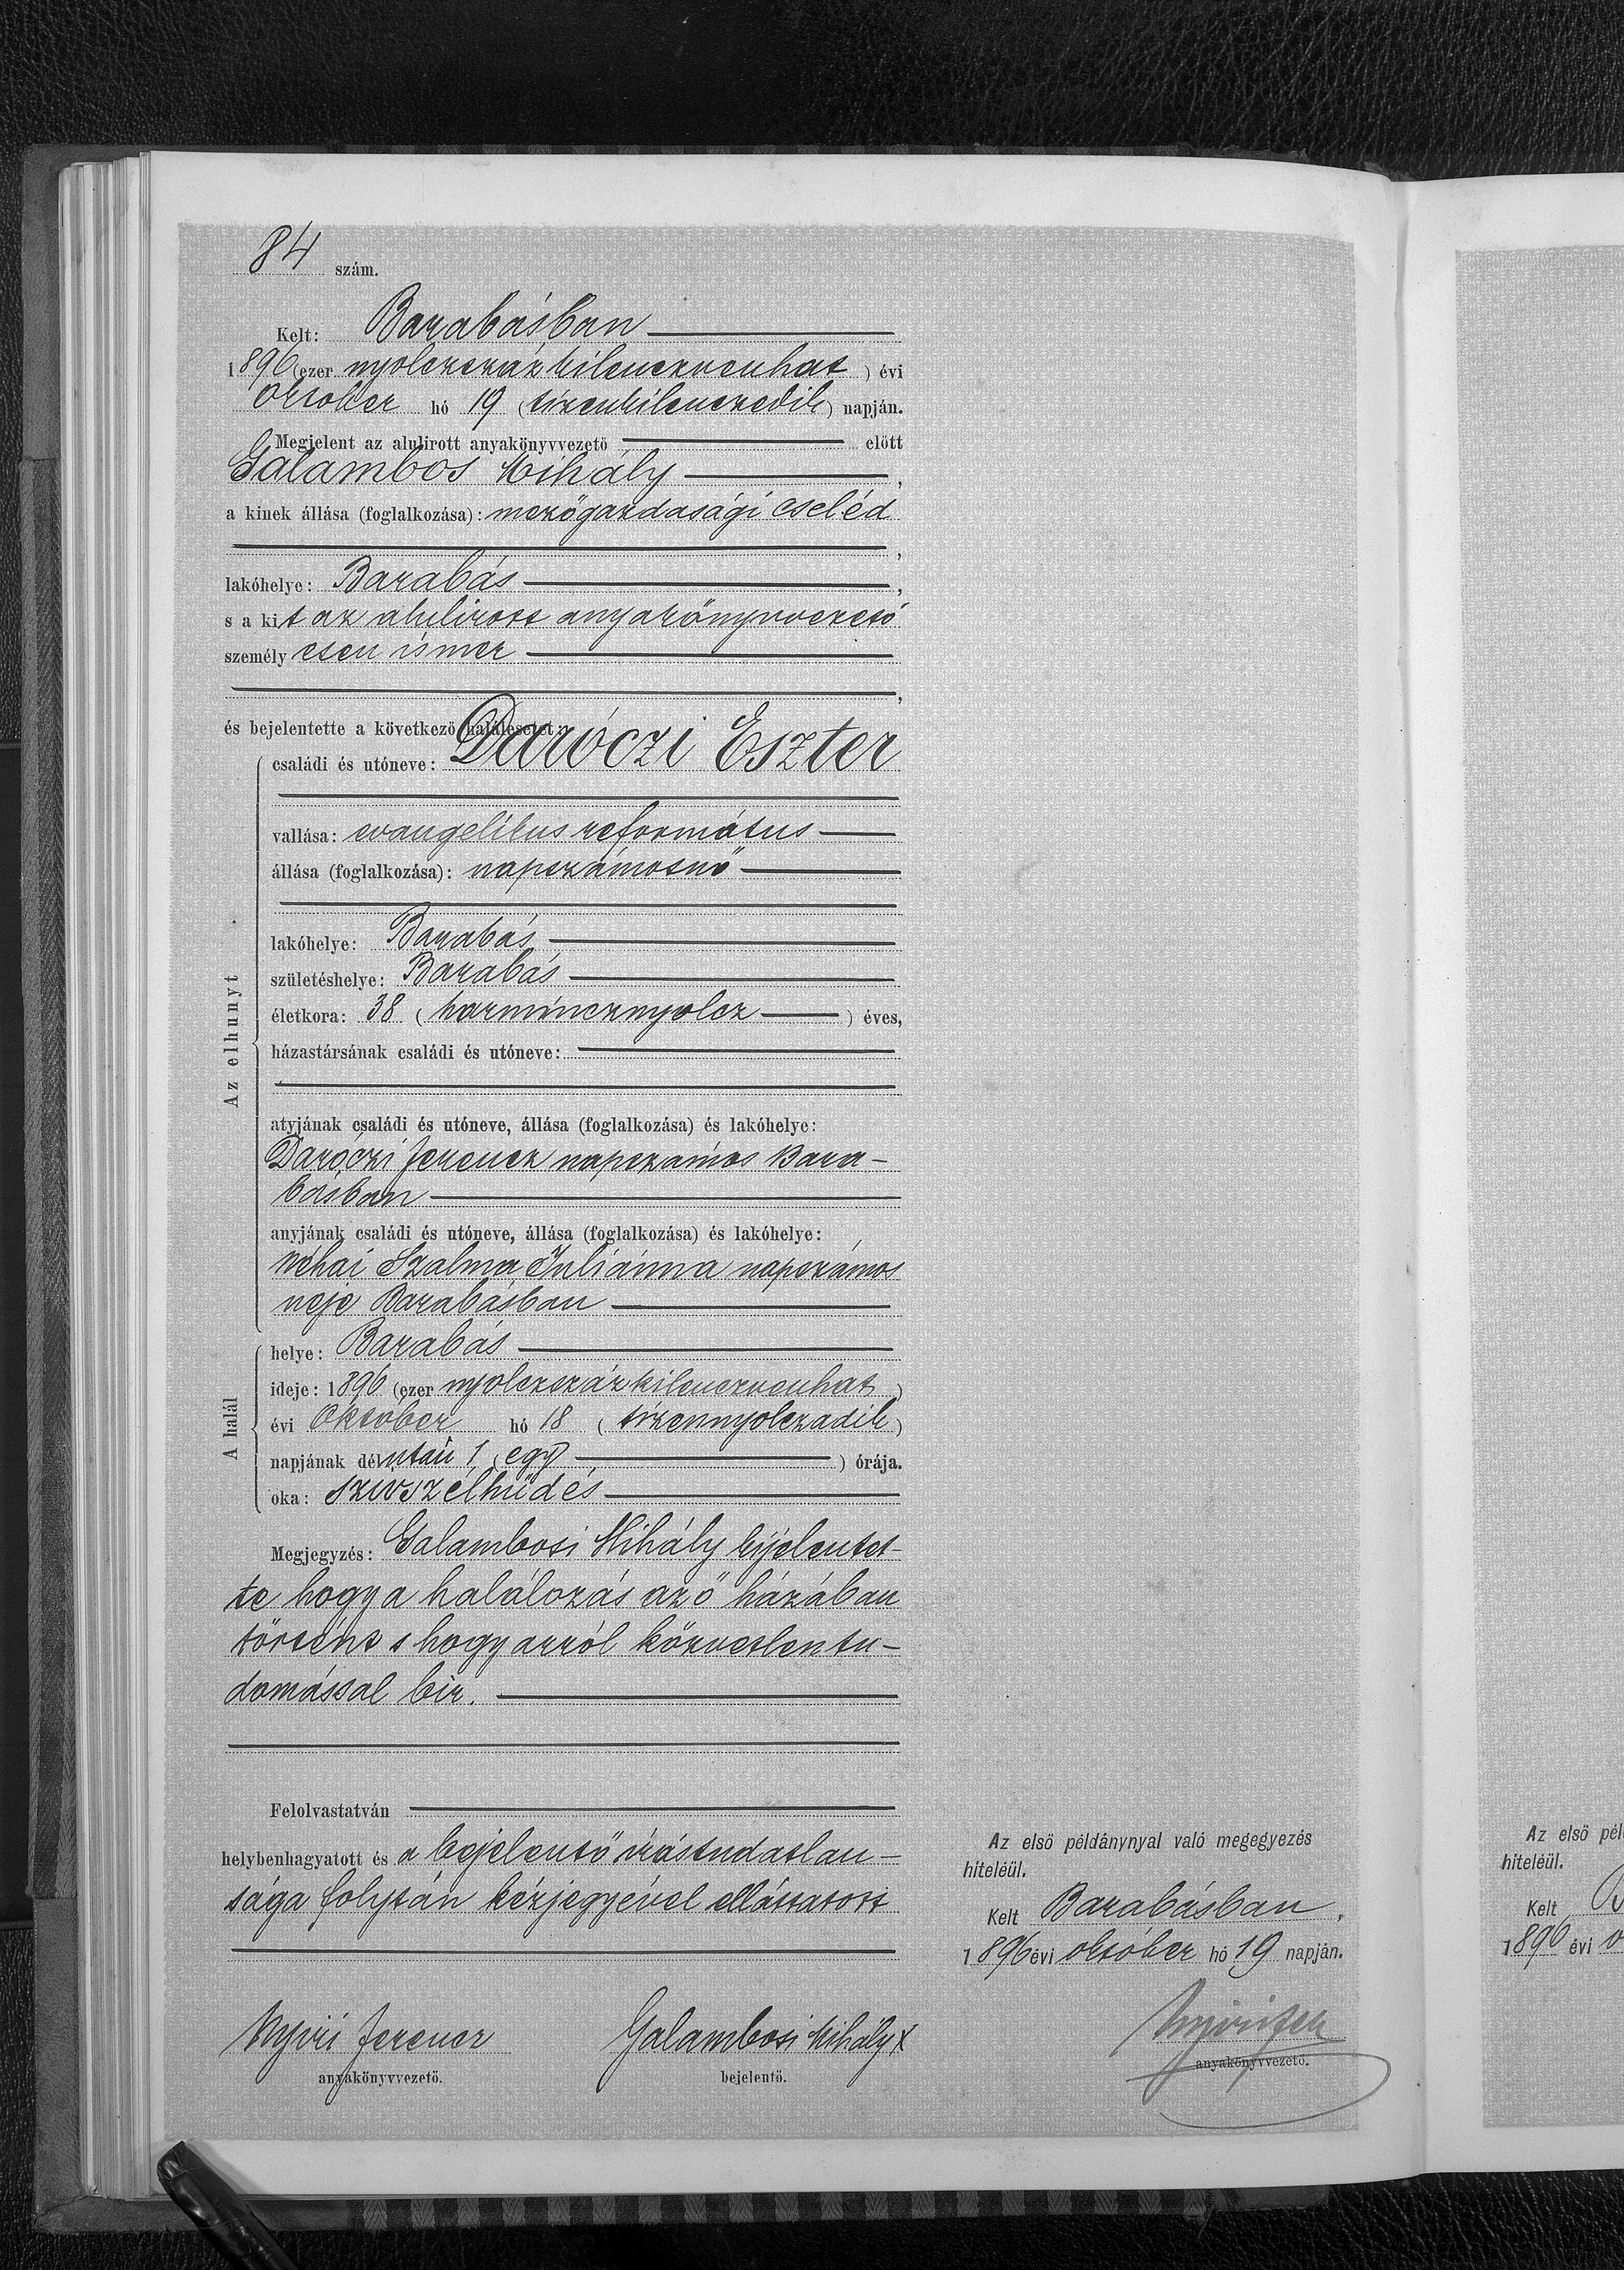 84 szám.
Kelt: Barabásban
1896 (ezer nyolczszázkilenczvenhat) évi
Október hó 19 (tizenkilenczedik) napján.
Megjelent az alulirott anyakönyvvezető előtt
Galambos Mihály,
a kinek állása (foglalkozása): mezőgazdasági cseléd
,
lakóhelye: Barabás,
s a kit az alulirott anyakönyvvezető
személyesen ismer
,
és bejelentette a következő halálesetet:
Az elhunyt
családi és utóneve: Daróczi Eszter
vallása: evangelikus református
állása (foglalkozása): napszámosnő
lakóhelye: Barabás
születéshelye: Barabás
életkora: 38 (harmincznyolcz) éves,
házastársának családi és utóneve:
atyjának családi és utóneve, állása (foglalkozása) és lakóhelye:
Daróczi Ferencz napszámos Bara-
básban
anyjának családi és utóneve, állása (foglalkozása) és lakóhelye:
Néhai Szalma Juliánna napszámos
neje Barabásban
A halál
helye: Barabás
ideje: 1896 (ezer nyolczszázkilenczvenhat)
évi Október hó 18 (tizennyolczadik)
napjának délután 1 (egy) órája.
oka: szívszélhűdés
Megjegyzés: Galambosi Mihály bijelentet-
te hogy a halálozás az ő házában
történt s hogy arról közvetlen tu-
domással bir.
Felolvastatván
helybenhagyatott és a bejelentő irástudatlan-
sága folytán kézjegyével elláttatott
Nyiri Ferencz
anyakönyvvezető.
Galambosi Mihály X
bejelentő.
Az első példánynyal való megegyezés
hiteléül.
Kelt Barabásban,
1896 évi október hó 19 napján.
anyakönyvvezető.
Az első pél
hiteléül.
Kelt
1896 évi o